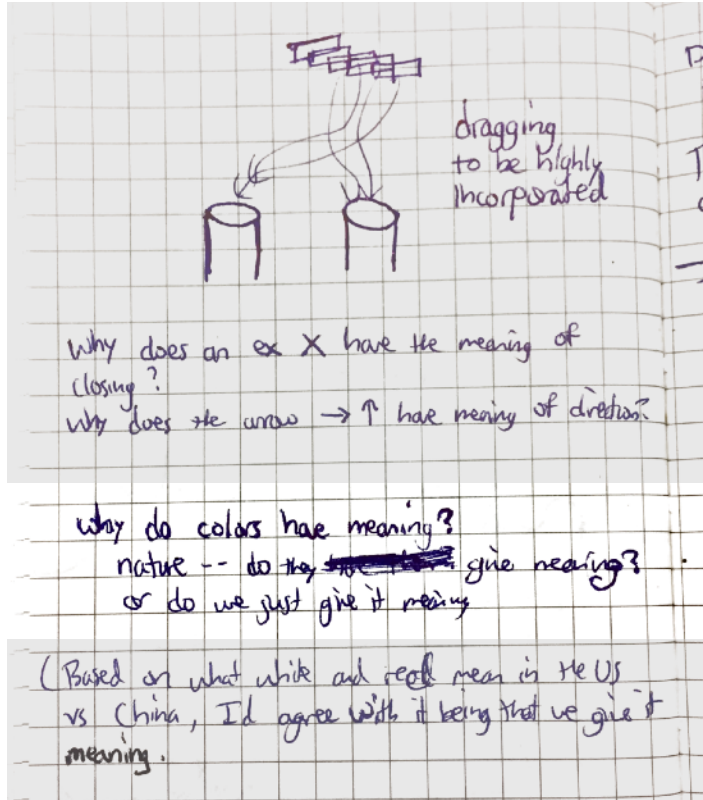 dragging
to be highly
incorporated
Why does an ex X have the meaning of
closing?
Why does the arrow → ↑ have meaning of direction?
why do colors have meaning?
nature -- do they give meaning?
or do we just give it meaning
(Based on what white and red mean in the US
vs China, I'd agree with it being that we give it
meaning.